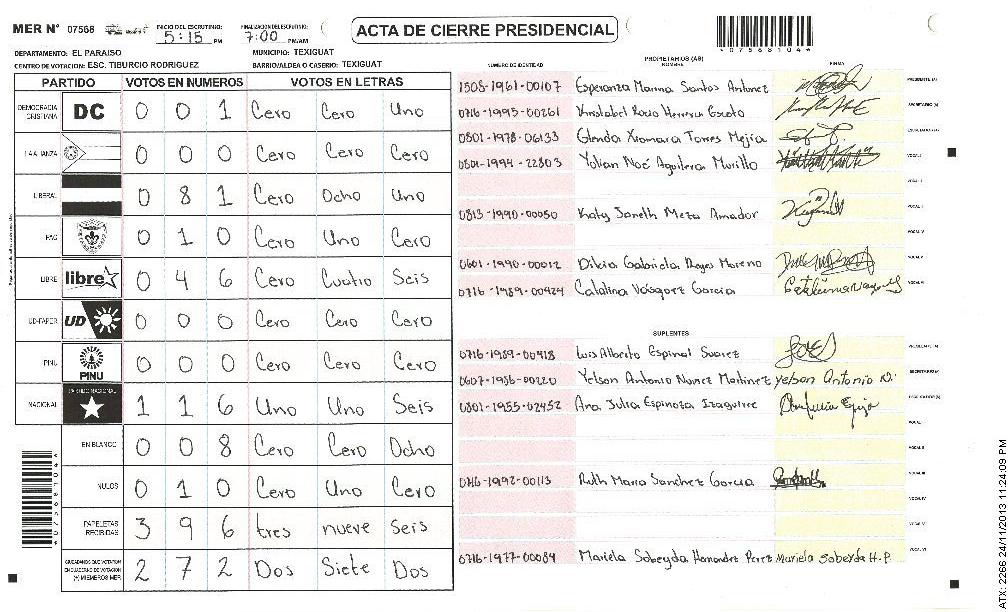 MER N° 07568 INICIO DEL ESCRUTINIO: 5:15 PM FINALIZACION DEL ESCRUTINIO: 7:00 PM/AM
ACTA DE CIERRE PRESIDENCIAL
*07568104*
DEPARTAMENTO: EL PARAISO MUNICIPIO: TEXIGUAT
CENTRO DE VOTACION: ESC. TIBURCIO RODRIGUEZ BARRIO/ALDEA O CASERIO: TEXIGUAT
PARTIDO VOTOS EN NUMEROS VOTOS EN LETRAS
DEMOCRACIA CRISTIANA DC 0 0 1 Cero Cero Uno
LA ALIANZA 0 0 0 Cero Cero Cero
LIBERAL 0 8 1 Cero Ocho Uno
PAC 0 1 0 Cero Uno Cero
LIBRE libre 0 4 6 Cero Cuatro Seis
UD-FAPER UD 0 0 0 Cero Cero Cero
PINU PINU 0 0 0 Cero Cero Cero
NACIONAL PARTIDO NACIONAL 1 1 6 Uno Uno Seis
EN BLANCO 0 0 8 Cero Cero Ocho
NULOS 0 1 0 Cero Uno Cero
PAPELETAS RECIBIDAS 3 9 6 tres nueve Seis
CIUDADANOS QUE VOTARON EN CUADERNO DE VOTACION (+) MIEMBROS MER 2 7 2 Dos Siete Dos
*07568104*
PROPIETARIOS (AS)
NUMERO DE IDENTIDAD NOMBRE FIRMA
1508-1961-00107 Esperanza Marina Santos Antunez PRESIDENTE (A)
0716-1995-00261 Kristabel Rocio Herrera Escoto SECRETARIO (A)
0801-1978-06133 Glenda Xiomara Torres Mejia ESCRUTADOR (A)
0801-1994-22803 Yolian Noé Aguilera Murillo VOCAL I
VOCAL II
0813-1990-00050 Katy Janeth Meza Amador
VOCAL IV
0601-1990-00012 Dilcia Gabriela Reyes Moreno VOCAL V
0716-1989-00424 Catalina Vasquez Garcia VOCAL VI
SUPLENTES
0716-1989-00418 Luis Alberto Espinal Suarez PRESIDENTE (A)
0607-1986-00220 Yelson Antonio Nunez Martinez yelson Antonio N. SECRETARIO (A)
0801-1955-02452 Ana Julia Espinoza Izaguirre ESCRUTADOR (A)
VOCAL I
VOCAL II
0716-1992-00113 Ruth Maria Sanchez Garcia VOCAL III
VOCAL IV
VOCAL V
0716-1977-00084 Mariela Sobeyda Hernandez Perez Mariela Sobeyda H.P. VOCAL VI
ATX: 2266 24/11/2013 11:24:09 PM